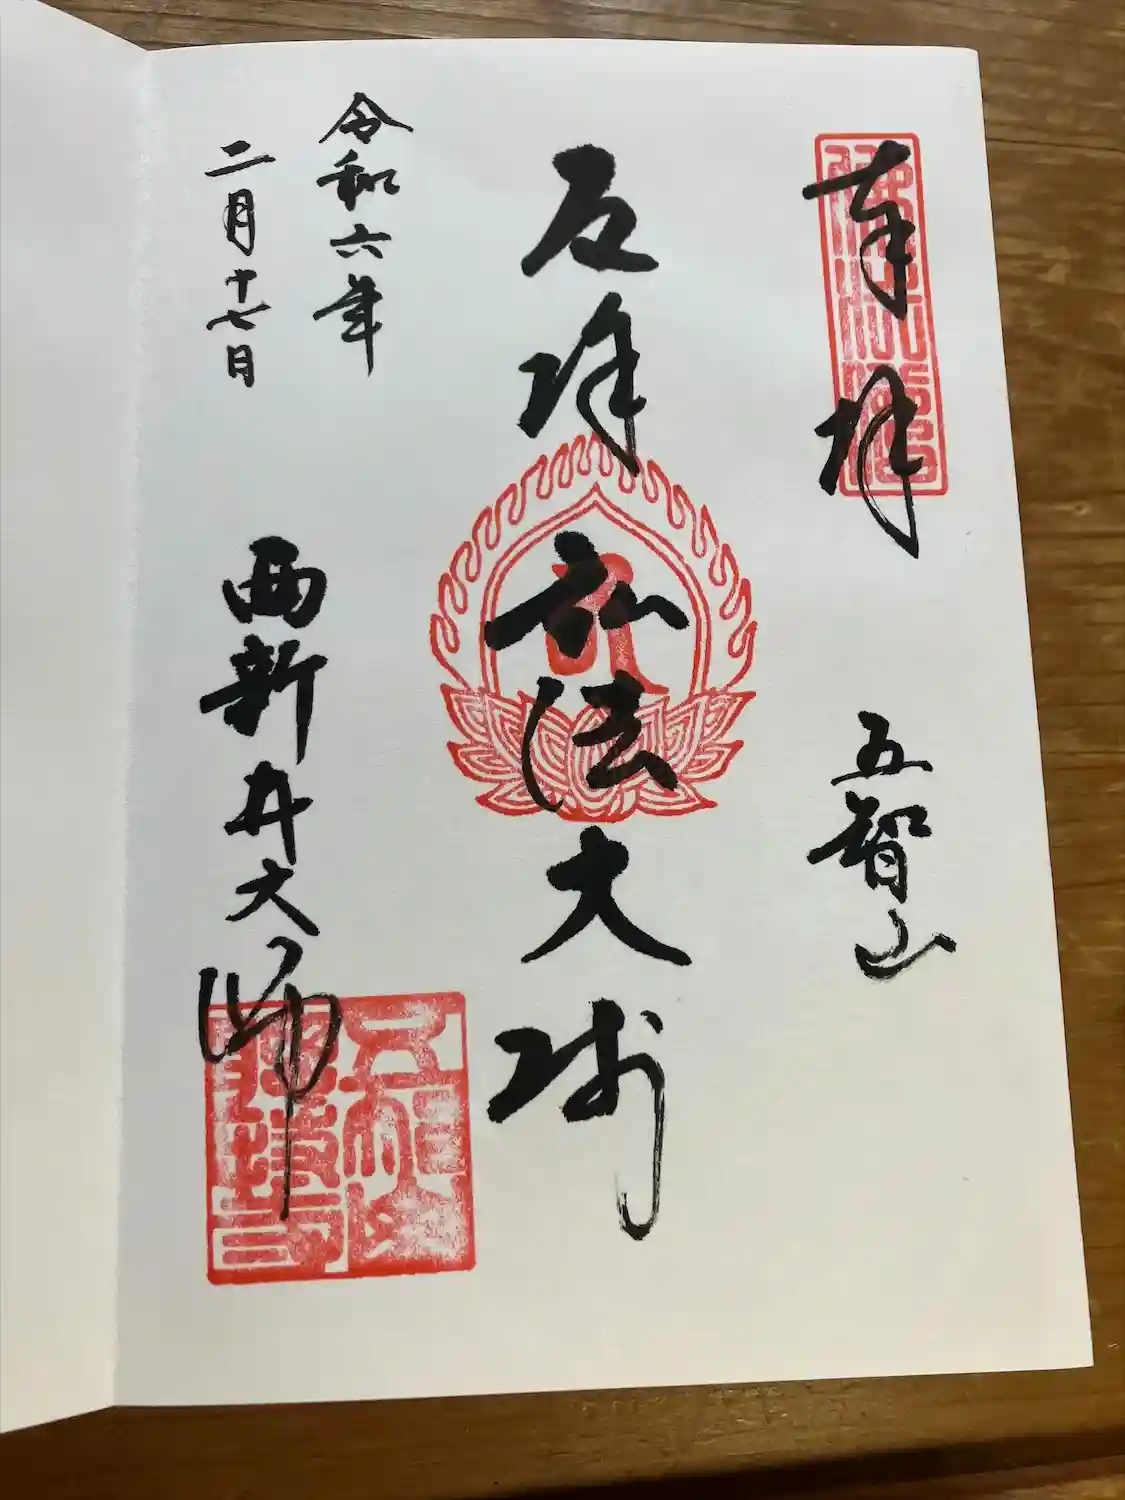 奉拝
五智山
厄除
弘法大師
令和六年
二月十七日
西新井大師
五智山
總持寺